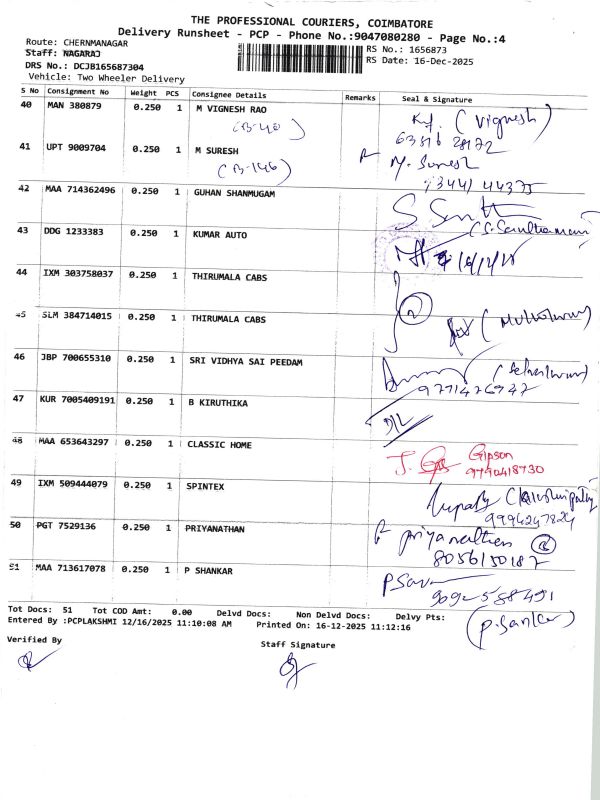 THE PROFESSIONAL COURIERS, COIMBATORE
Delivery Runsheet - PCP - Phone No.:9047080280 - Page No.:4
Route: CHERNMANAGAR
RS No.: 1656873
Staff: NAGARAJ
RS Date: 16-Dec-2025
DRS No.: DCJB165687304
Vehicle: Two Wheeler Delivery
S No Consignment No Weight PCS Consignee Details Remarks Seal & Signature
40 MAN 380879 0.250 1 M VIGNESH RAO (Vignesh)
(B-40)
41 UPT 9009704 0.250 1 M SURESH M. Suresh
(B-146)
93441 44375
42 MAA 714362496 0.250 1 GUHAN SHANMUGAM
43 DDG 1233383 0.250 1 KUMAR AUTO
44 IXM 303758037 0.250 1 THIRUMALA CABS
45 SLM 384714015 0.250 1 THIRUMALA CABS
46 JBP 700655310 0.250 1 SRI VIDHYA SAI PEEDAM
47 KUR 7005409191 0.250 1 B KIRUTHIKA D/L
48 MAA 653643297 0.250 1 CLASSIC HOME J. Gipson
9790418730
49 IXM 509444079 0.250 1 SPINTEX
9994247824
50 PGT 7529136 0.250 1 PRIYANATHAN Priyanathan
8056150187
51 MAA 713617078 0.250 1 P SHANKAR
Tot Docs: 51 Tot COD Amt: 0.00 Delvd Docs: Non Delvd Docs: Delvy Pts:
(P. Sankar)
Entered By :PCPLAKSHMI 12/16/2025 11:10:08 AM Printed On: 16-12-2025 11:12:16
Verified By
Staff Signature